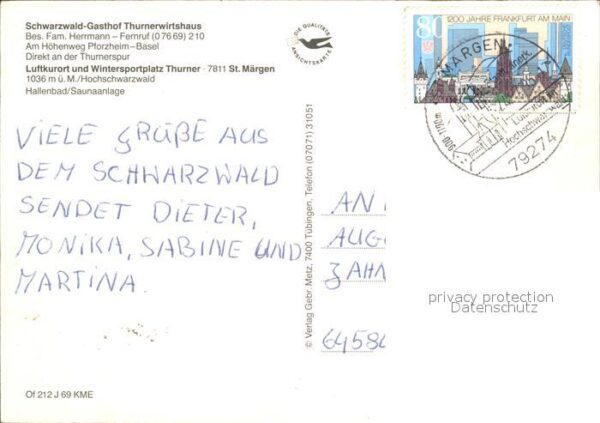 Schwarzwald-Gasthof Thurnerwirtshaus
Bes. Fam. Herrmann – Fernruf (0 76 69) 210
Am Höhenweg Pforzheim–Basel
Direkt an der Thurnerspur
Luftkurort und Wintersportplatz Thurner · 7811 St. Märgen
1036 m ü. M./Hochschwarzwald
Hallenbad/Saunaanlage
DIE QUALITÄTS
ANSICHTSKARTE
80
1200 JAHRE FRANKFURT AM MAIN
MÄRGEN
900-1100m
Luftkurort
Hochschwarzwald
79274
VIELE GRÜßE AUS
DEM SCHWARZWALD
SENDET DIETER,
MONIKA, SABINE UND
MARTINA.
© Verlag Gebr. Metz, 7400 Tübingen, Telefon (07071) 31051
AN
AUG
ZAHN
64584
privacy protection
Datenschutz
Of 212 J 69 KME